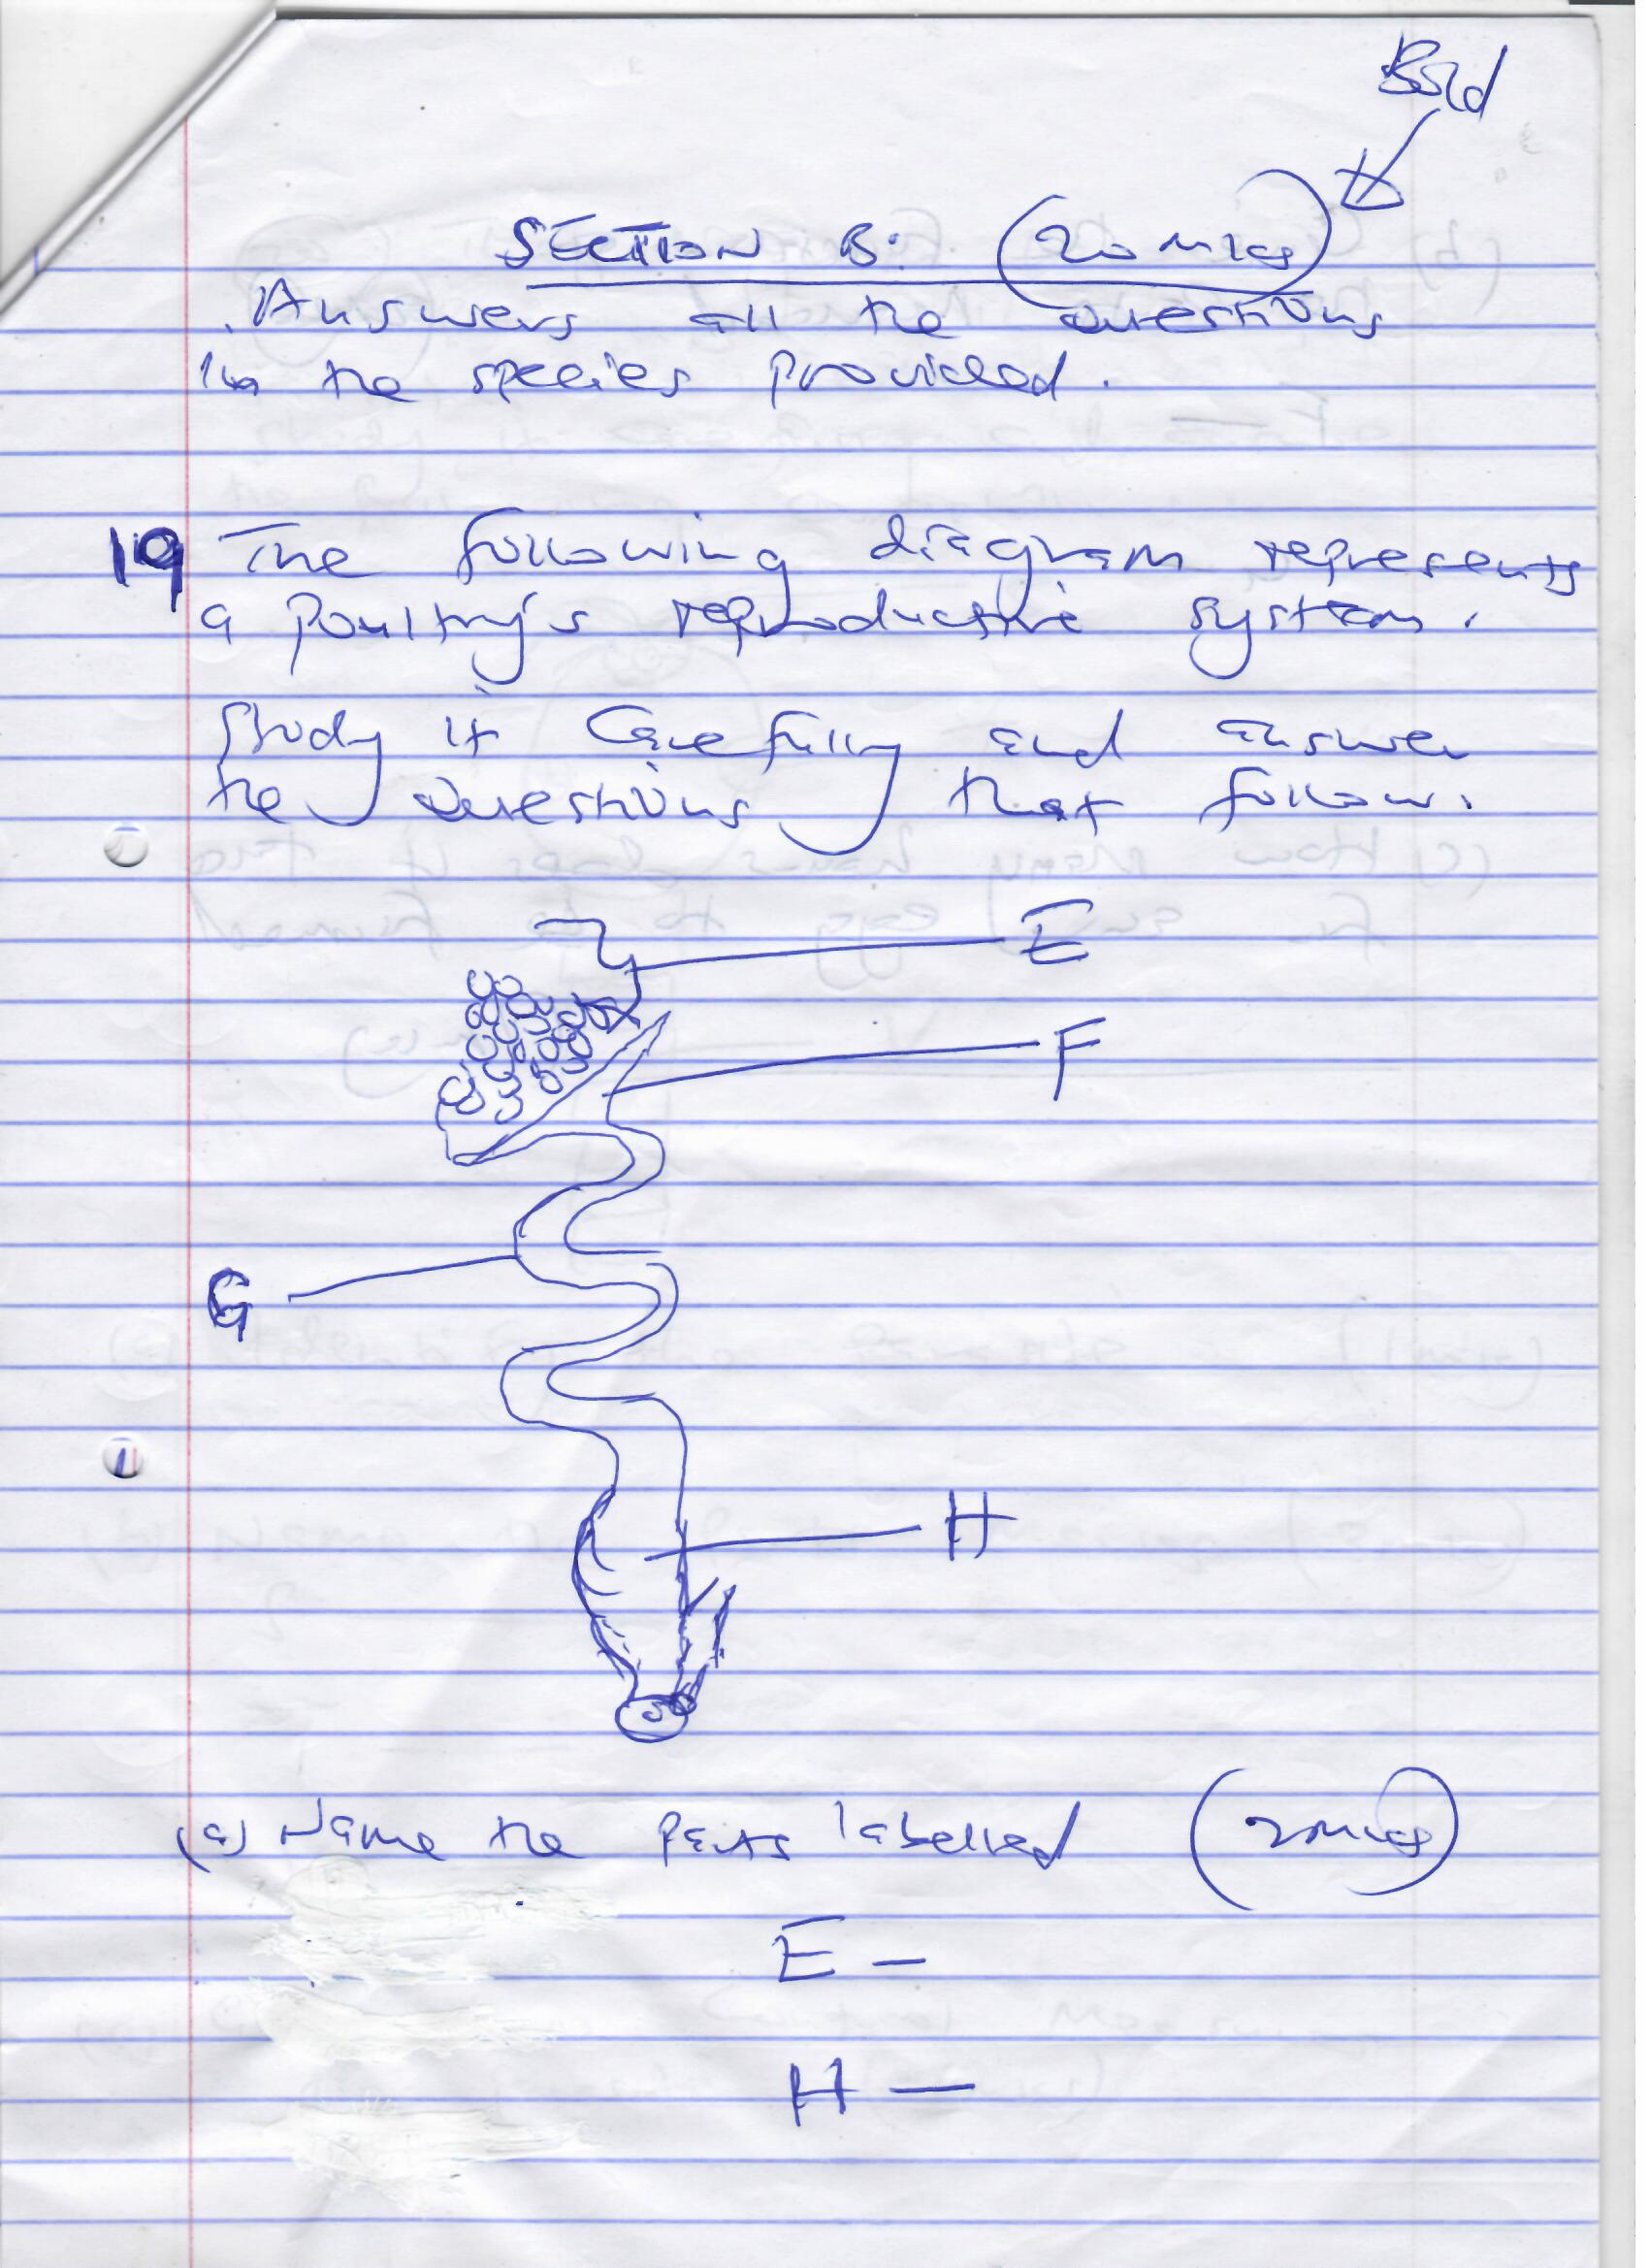 Bold
SECTION B: (20 mks)
Answers all the questions
in the species provided.
19 The following diagram represents
a poultry's reproductive system.
Study it carefully and answer
the questions that follow.
E
F
G
H
(a) Name the parts labelled (2mks)
E –
H –